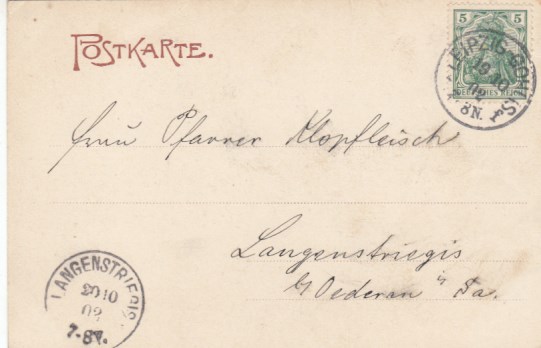 POSTKARTE.
5 5
DEUTSCHES REICH
LEIPZIG-GOHLIS
10
02
8N.
Frau Pfarrer Klopfleisch
Langenstriegis
b/Oederan i. Sa.
LANGENSTRIEGIS
20 10
02
7-8V.